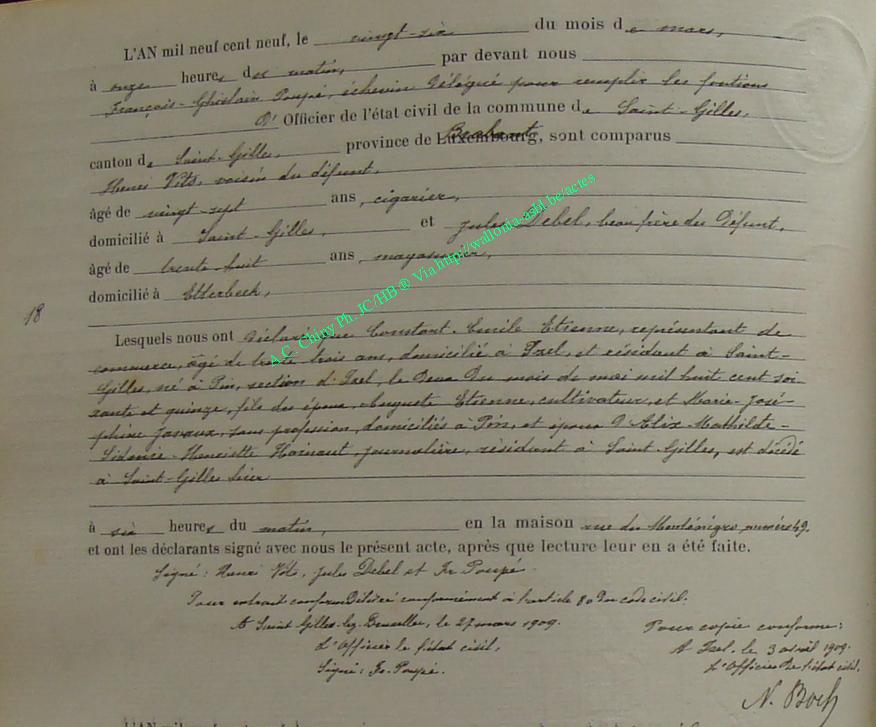 L'AN mil neuf cent neuf, le vingt-six du mois de mars,
à onze heures du matin, par devant nous
François-Ghislain Poupé, échevin délégué pour remplir les fontions
d' Officier de l'état civil de la commune de Saint-Gilles,
canton de Saint-Gilles, province de Luxembourg, Brabant sont comparus
Henri Vits, voisin du défunt,
âgé de vingt-sept ans, cigarier,
domicilié à Saint-Gilles, et Jules Debel, beau frère du défunt,
âgé de trente-huit ans, magasinier,
domicilié à Etterbeek,
18
Lesquels nous ont déclaré que Constant-Emile Etienne, représentant de
commerce, âgé de trente trois ans, domicilié à Izel, et résidant à Saint-
Gilles, né à Pin, section d'Izel, le deux du mois de mai mil huit cent soi-
xante et quinze, fils des époux Auguste Etienne, cultivateur, et Marie-José-
phine Javaux, sans profession, domiciliés à Pin, et époux d'Alix-Mathilde-
Sidonie-Henriette Hainaut, journalière, résidant à Saint-Gilles, est décédé
à Saint-Gilles hier
à six heures du matin, en la maison rue du Monténégro, numéro 49.
et ont les déclarants signé avec nous le présent acte, après que lecture leur en a été faite.
Signé: Henri Vits, Jules Debel et Fr Poupé.
Pour extrait conforme délivré conformément à l'article 80 du code civil.
A Saint Gilles-lez-Bruxelles, le 27 mars 1909.
L'Officier de l'état civil,
Signé: Fr. Poupé.
Pour copie conforme:
A Izel, le 3 avril 1909.
L'Officier de l'état civil,
N. Boch
A.C. Chiny Ph. JC/HB ® Via http://wallonia-asbl.be/actes